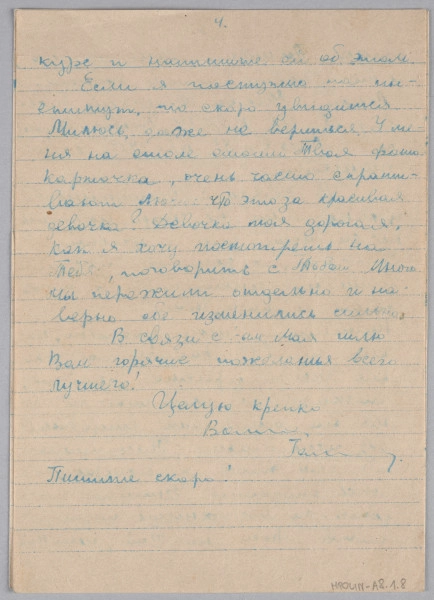 4.
курс и напишите ей об этом
Если я поступлю
то скоро увидимся
Милюсь, даже не верится. У ме-
ня на столе стоит Твоя фото
карточка, очень часто спраши-
вают люди что это за красивая
девочка? Девочка моя дорогая,
как я хочу посмотреть на
Тебя, поговорить с Тобой. Много
мы пережили отдельно и на-
верно обе изменились сильно.
В связи с 1-ым Мая шлю
Вам горячие пожеланья всего
лучшего!
Целую крепко
Ваша
Пишите скоро!
HROUM-A8.1.8